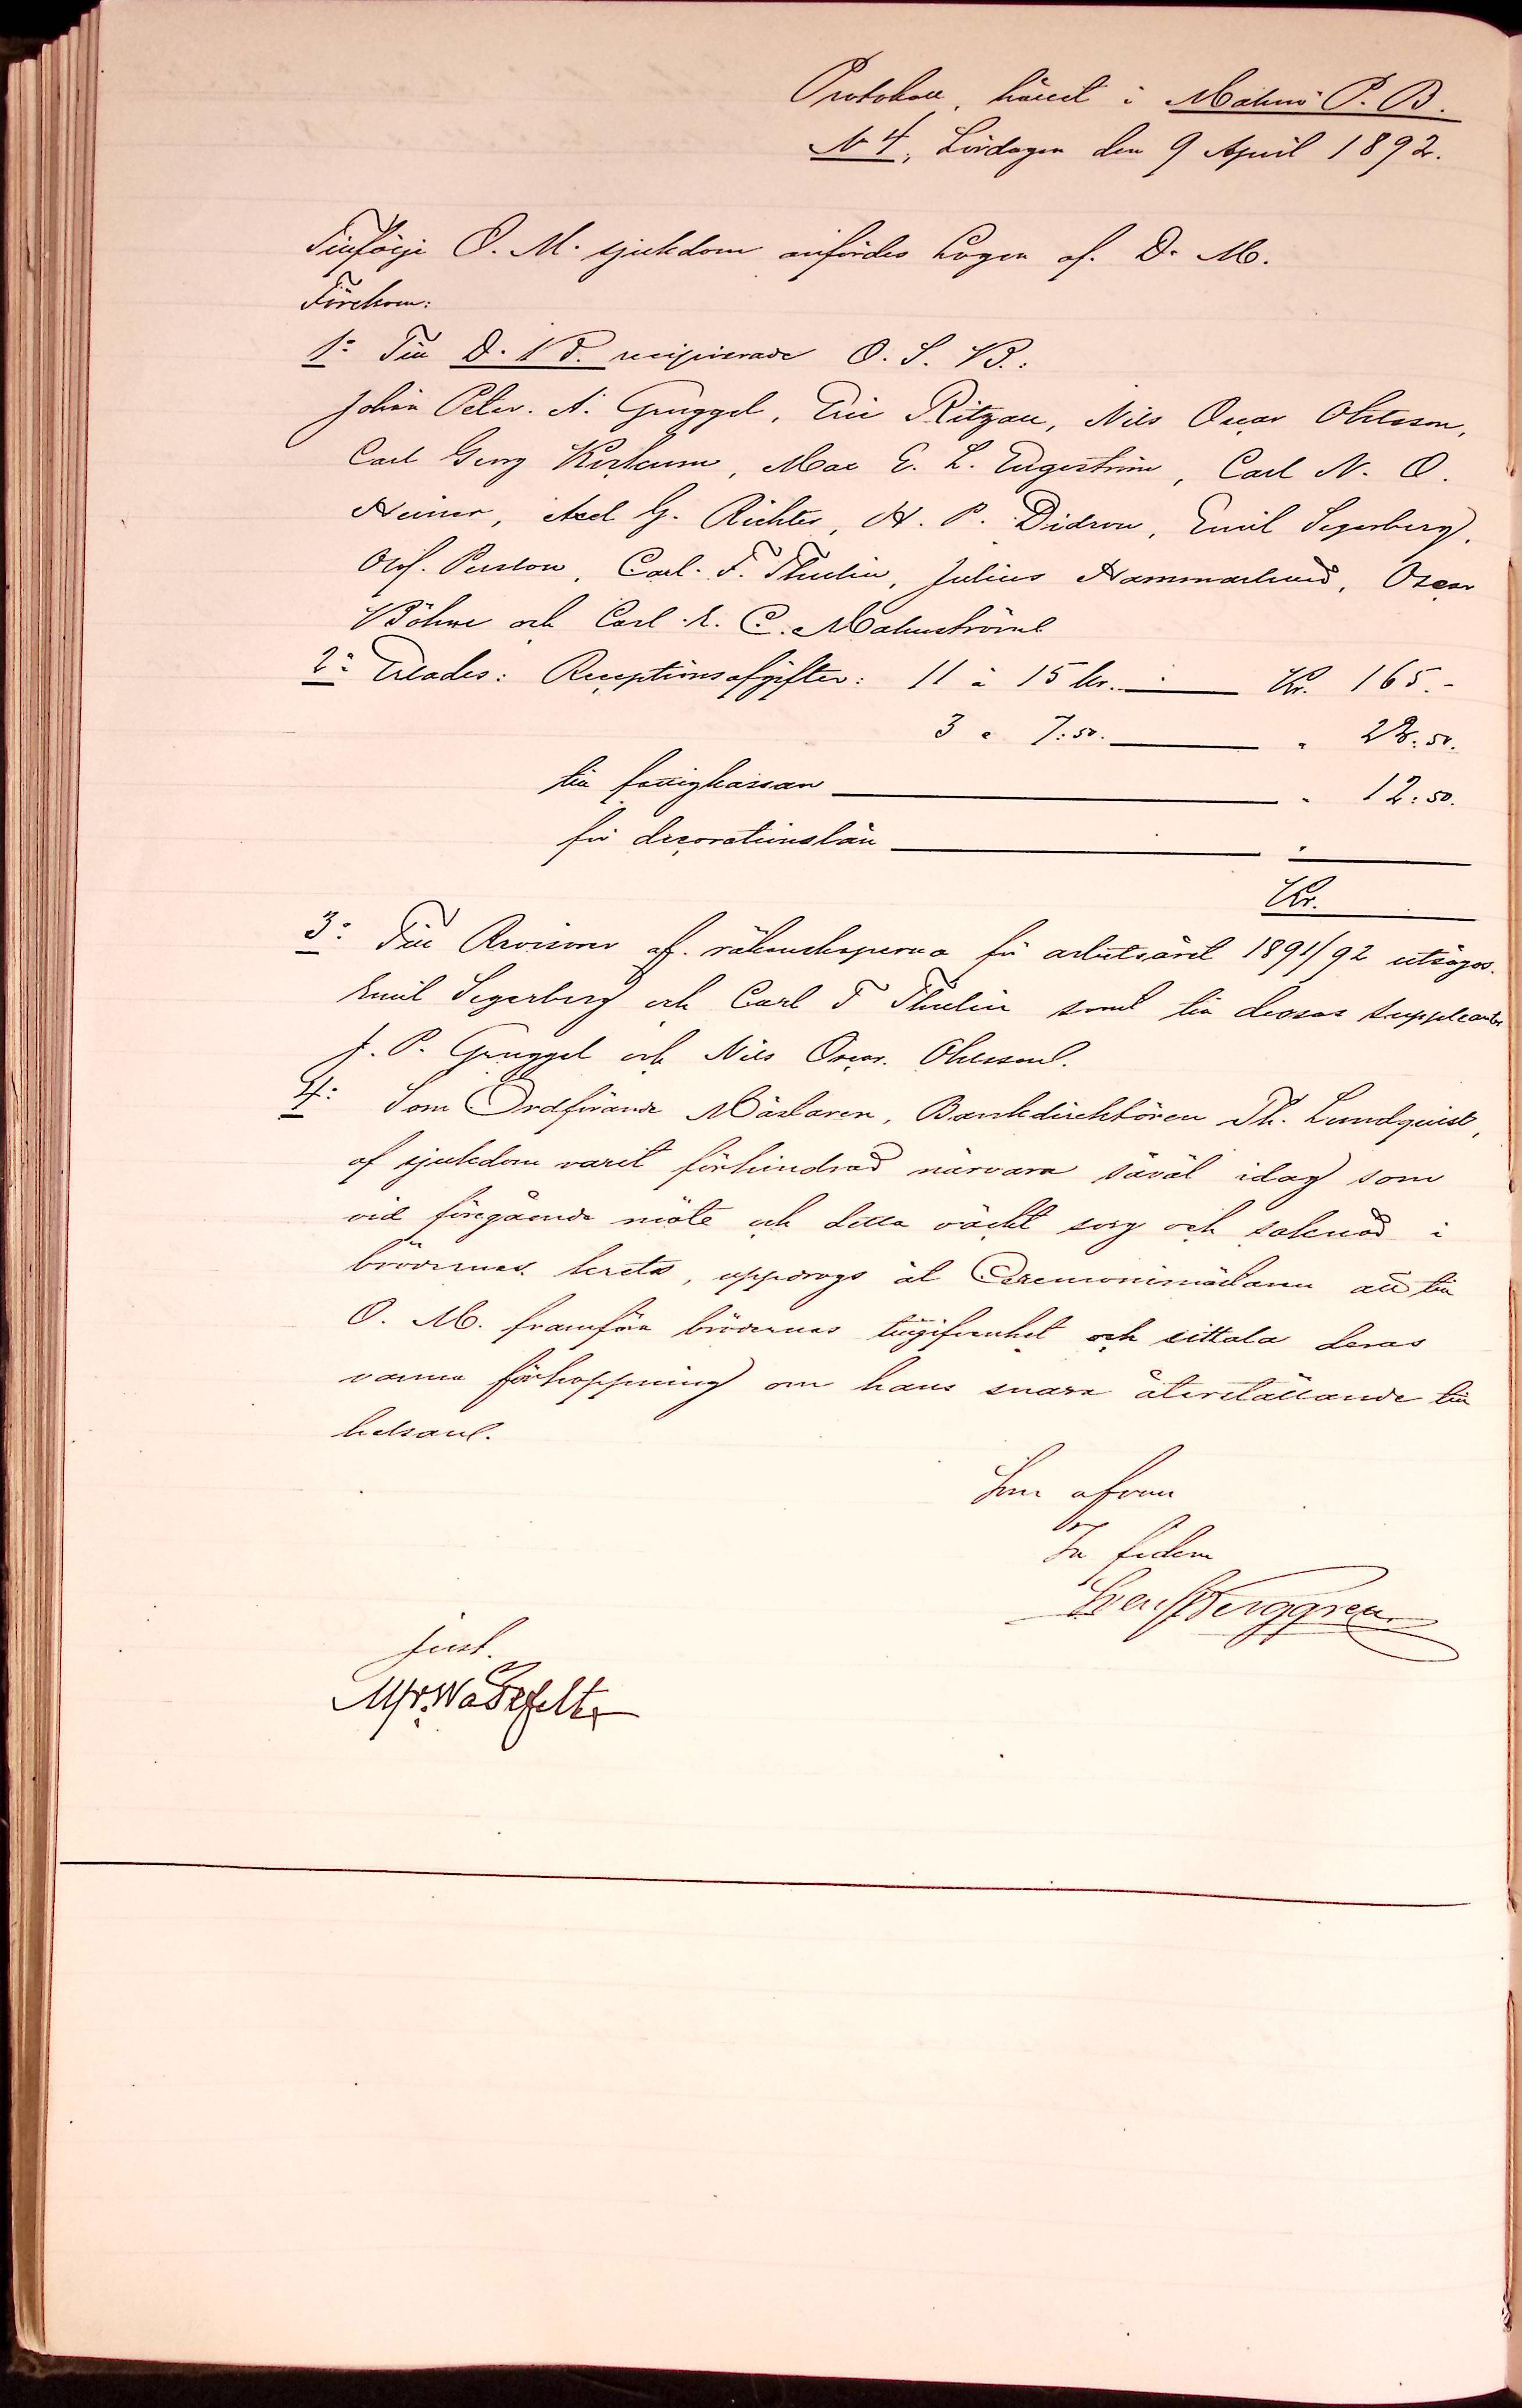 Protokoll, hållet i Malmö P. B.
N 4, Lördagen den 9 April 1892.
Tillfölje O. M. sjukdom anfördes Logen af D. M.
Förekom:
1: Till D. V. d. recipierade O. S. B.:
Johan Peter A. Gruggel, Eric Ritzau, Nils Oscar Ohlsson,
Carl Georg, Max E. L. Engeström, Carl N. O.
Heiner, Axel G. Richter, H. P. Didron, Emil Segerberg,
Olof Persson, Carl F. Thulin, Julius Hammarlund, Oscar
Böhme och Carl E. C. Malmström
2: Erlades: Receptionsafgifter: 11 á 15 kr. Kr. 165.-
3 " 7:50. " 22:50.
till fattigkassan " 12:50.
för decorationslån "
Kr.
3: Till Revisorer af räkenskaperna för arbetsåret 1891/92 utsågos
Emil Segerberg och Carl F Thulin samt till dessas suppleanter
J. P. Gruggel och Nils Oscar Ohlsson.
4: Som Ordförande Mästaren, Bankdirektören Th. Lundquist,
af sjukdom varit förhindrad närvara såväl idag som
vid föregående möte och detta väckt sorg och saknad i
brödernas krets, uppdrogs åt Ceremonimästaren att till
O. M. framföra brödernas tillgifvenhet och uttala deras
varma förhoppning om hans snara återställande till
helsan.
Som ofvan
In fidem
Sven Berggren
Just.